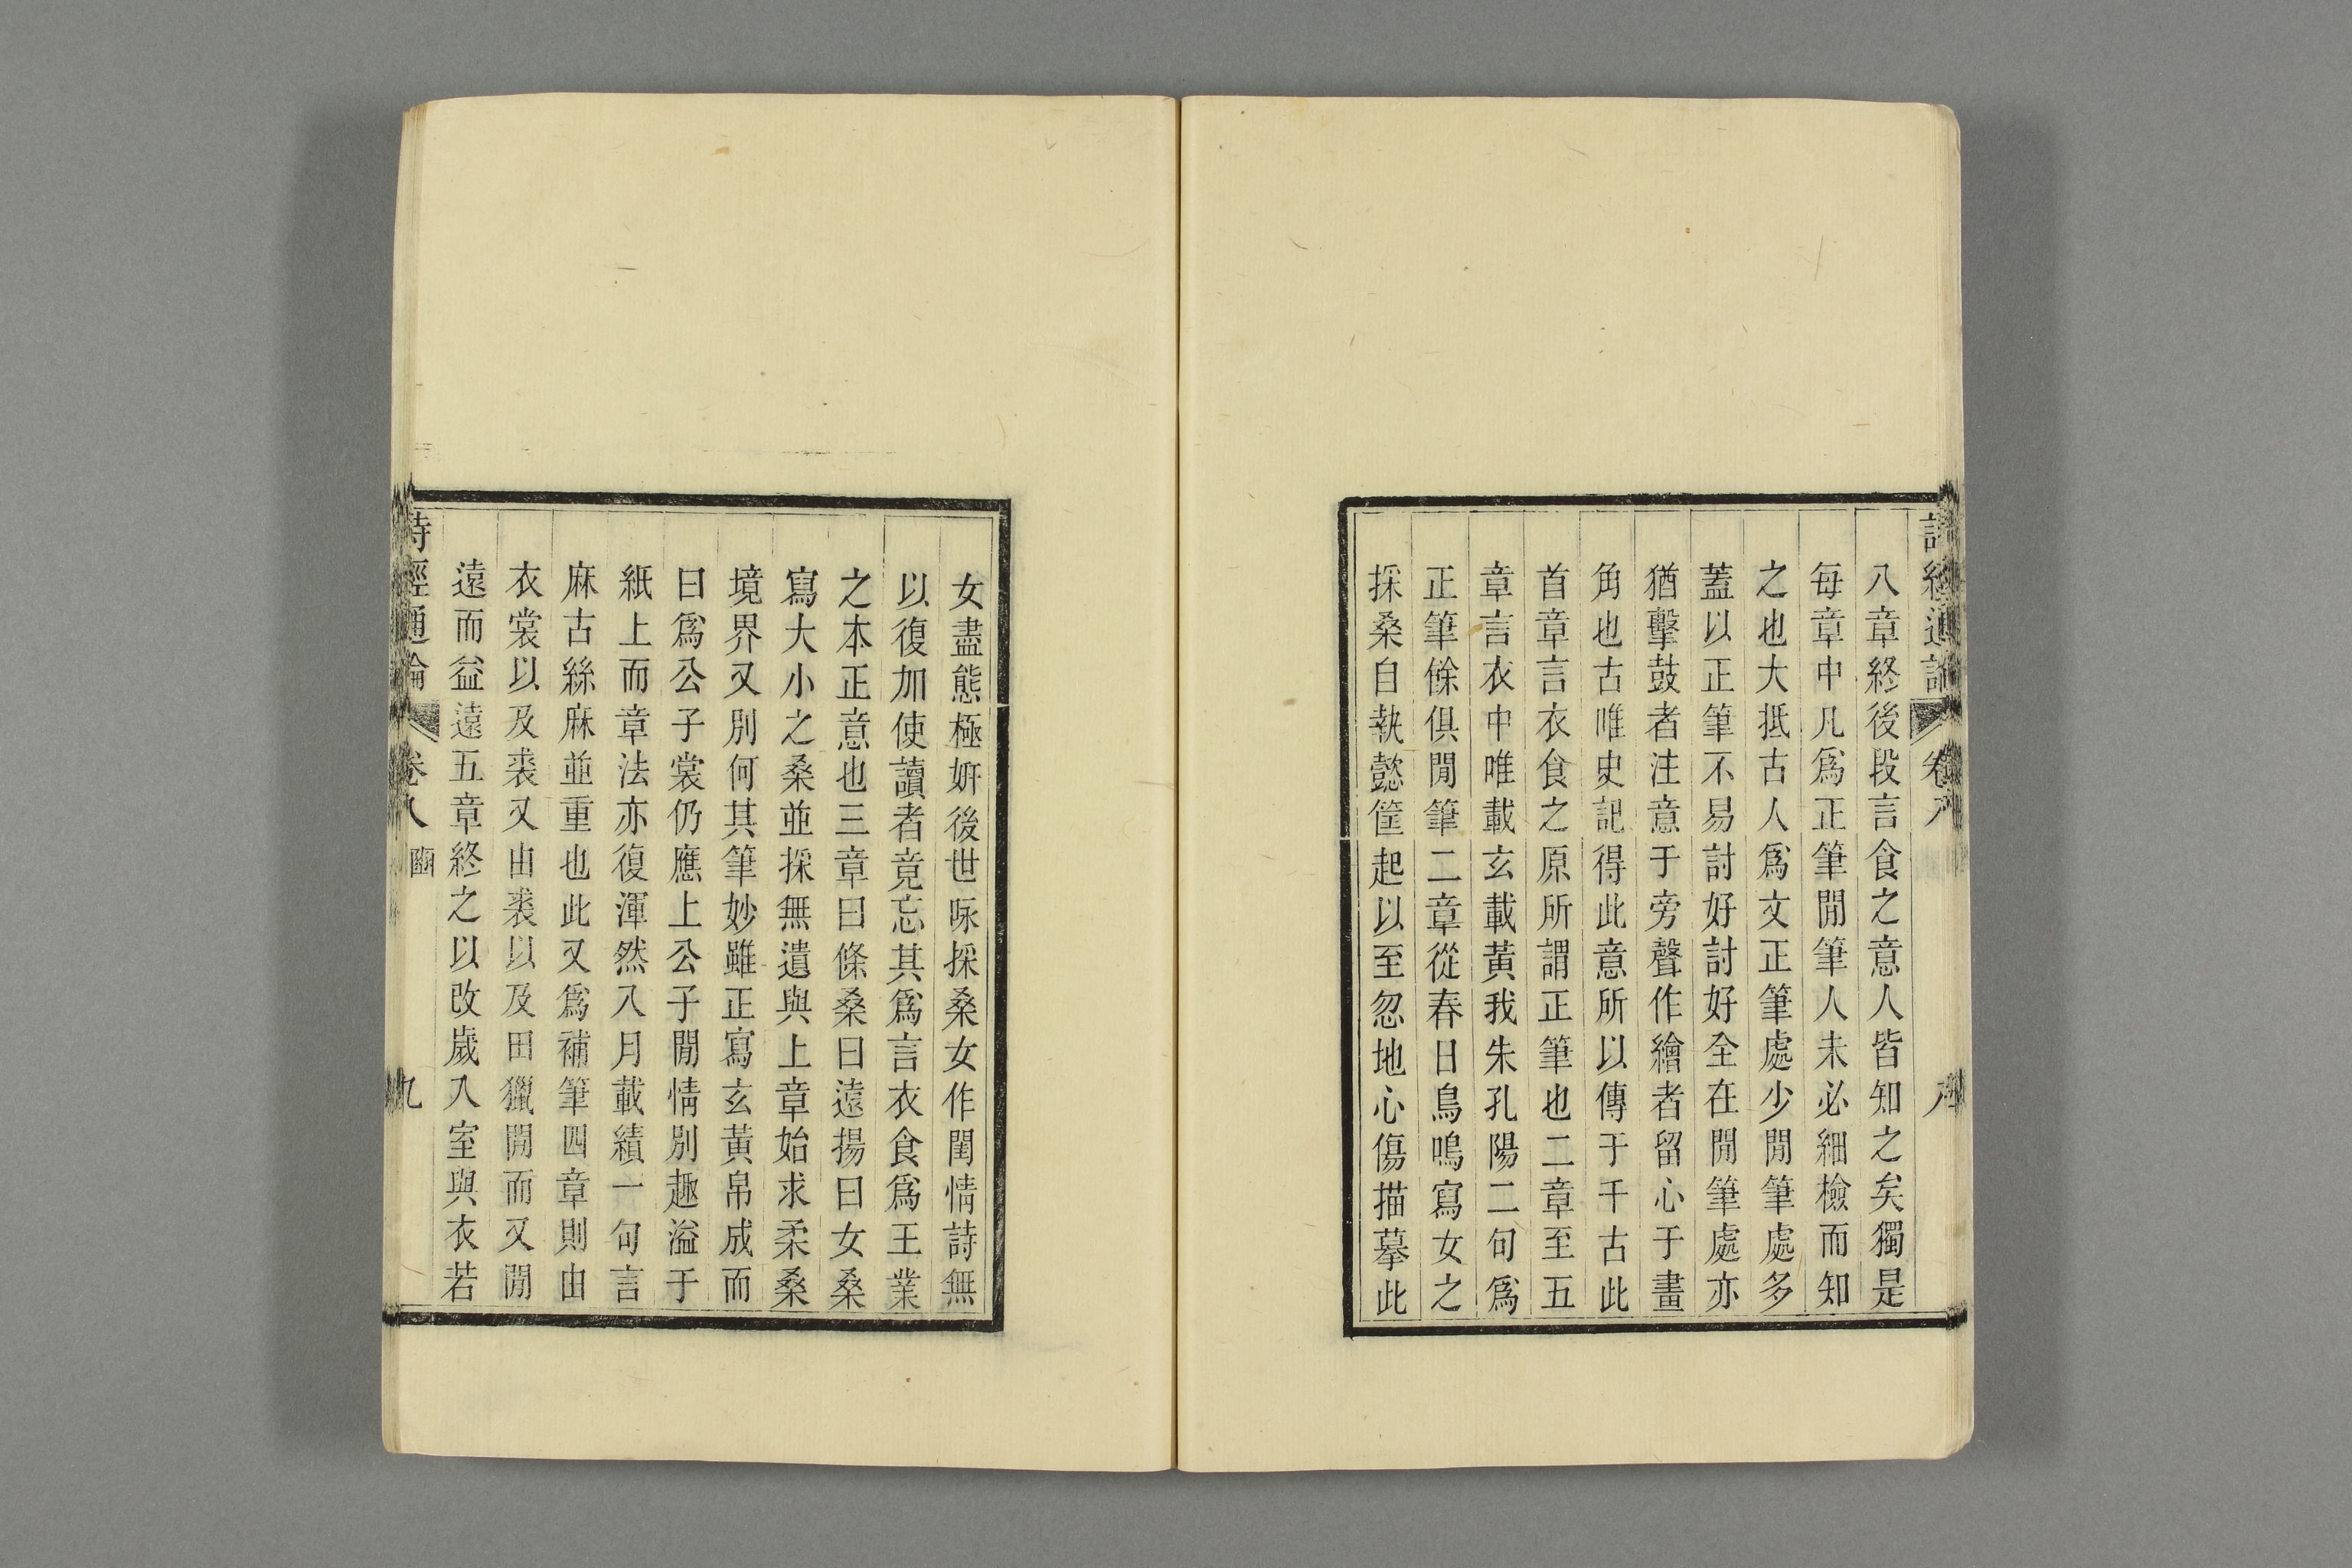 詩經通論 卷八 八
八章終後段言食之意人皆知之矣獨是
每章中凡爲正筆閒筆人未必細檢而知
之也大抵古人爲文正筆處少閒筆處多
蓋以正筆不易討好討好全在閒筆處亦
猶擊鼓者注意于旁聲作繪者留心于畫
角也古唯史記得此意所以傳于千古此
首章言衣食之原所謂正筆也二章至五
章言衣中唯載玄載黃我朱孔陽二句爲
正筆餘俱閒筆二章從春日鳥鳴寫女之
採桑自執懿筐起以至忽地心傷描摹此
女盡態極妍後世咏採桑女作閨情詩無
以復加使讀者竟忘其爲言衣食爲王業
之本正意也三章曰條桑曰遠揚曰女桑
寫大小之桑並採無遺與上章始求柔桑
境界又別何其筆妙雖正寫玄黃帛成而
曰爲公子裳仍應上公子閒情別趣溢于
紙上而章法亦復渾然八月載績一句言
麻古絲麻並重也此又爲補筆四章則由
衣裳以及裘又由裘以及田獵閒而又閒
遠而益遠五章終之以改歲入室與衣若
詩經通論 卷八 豳 九